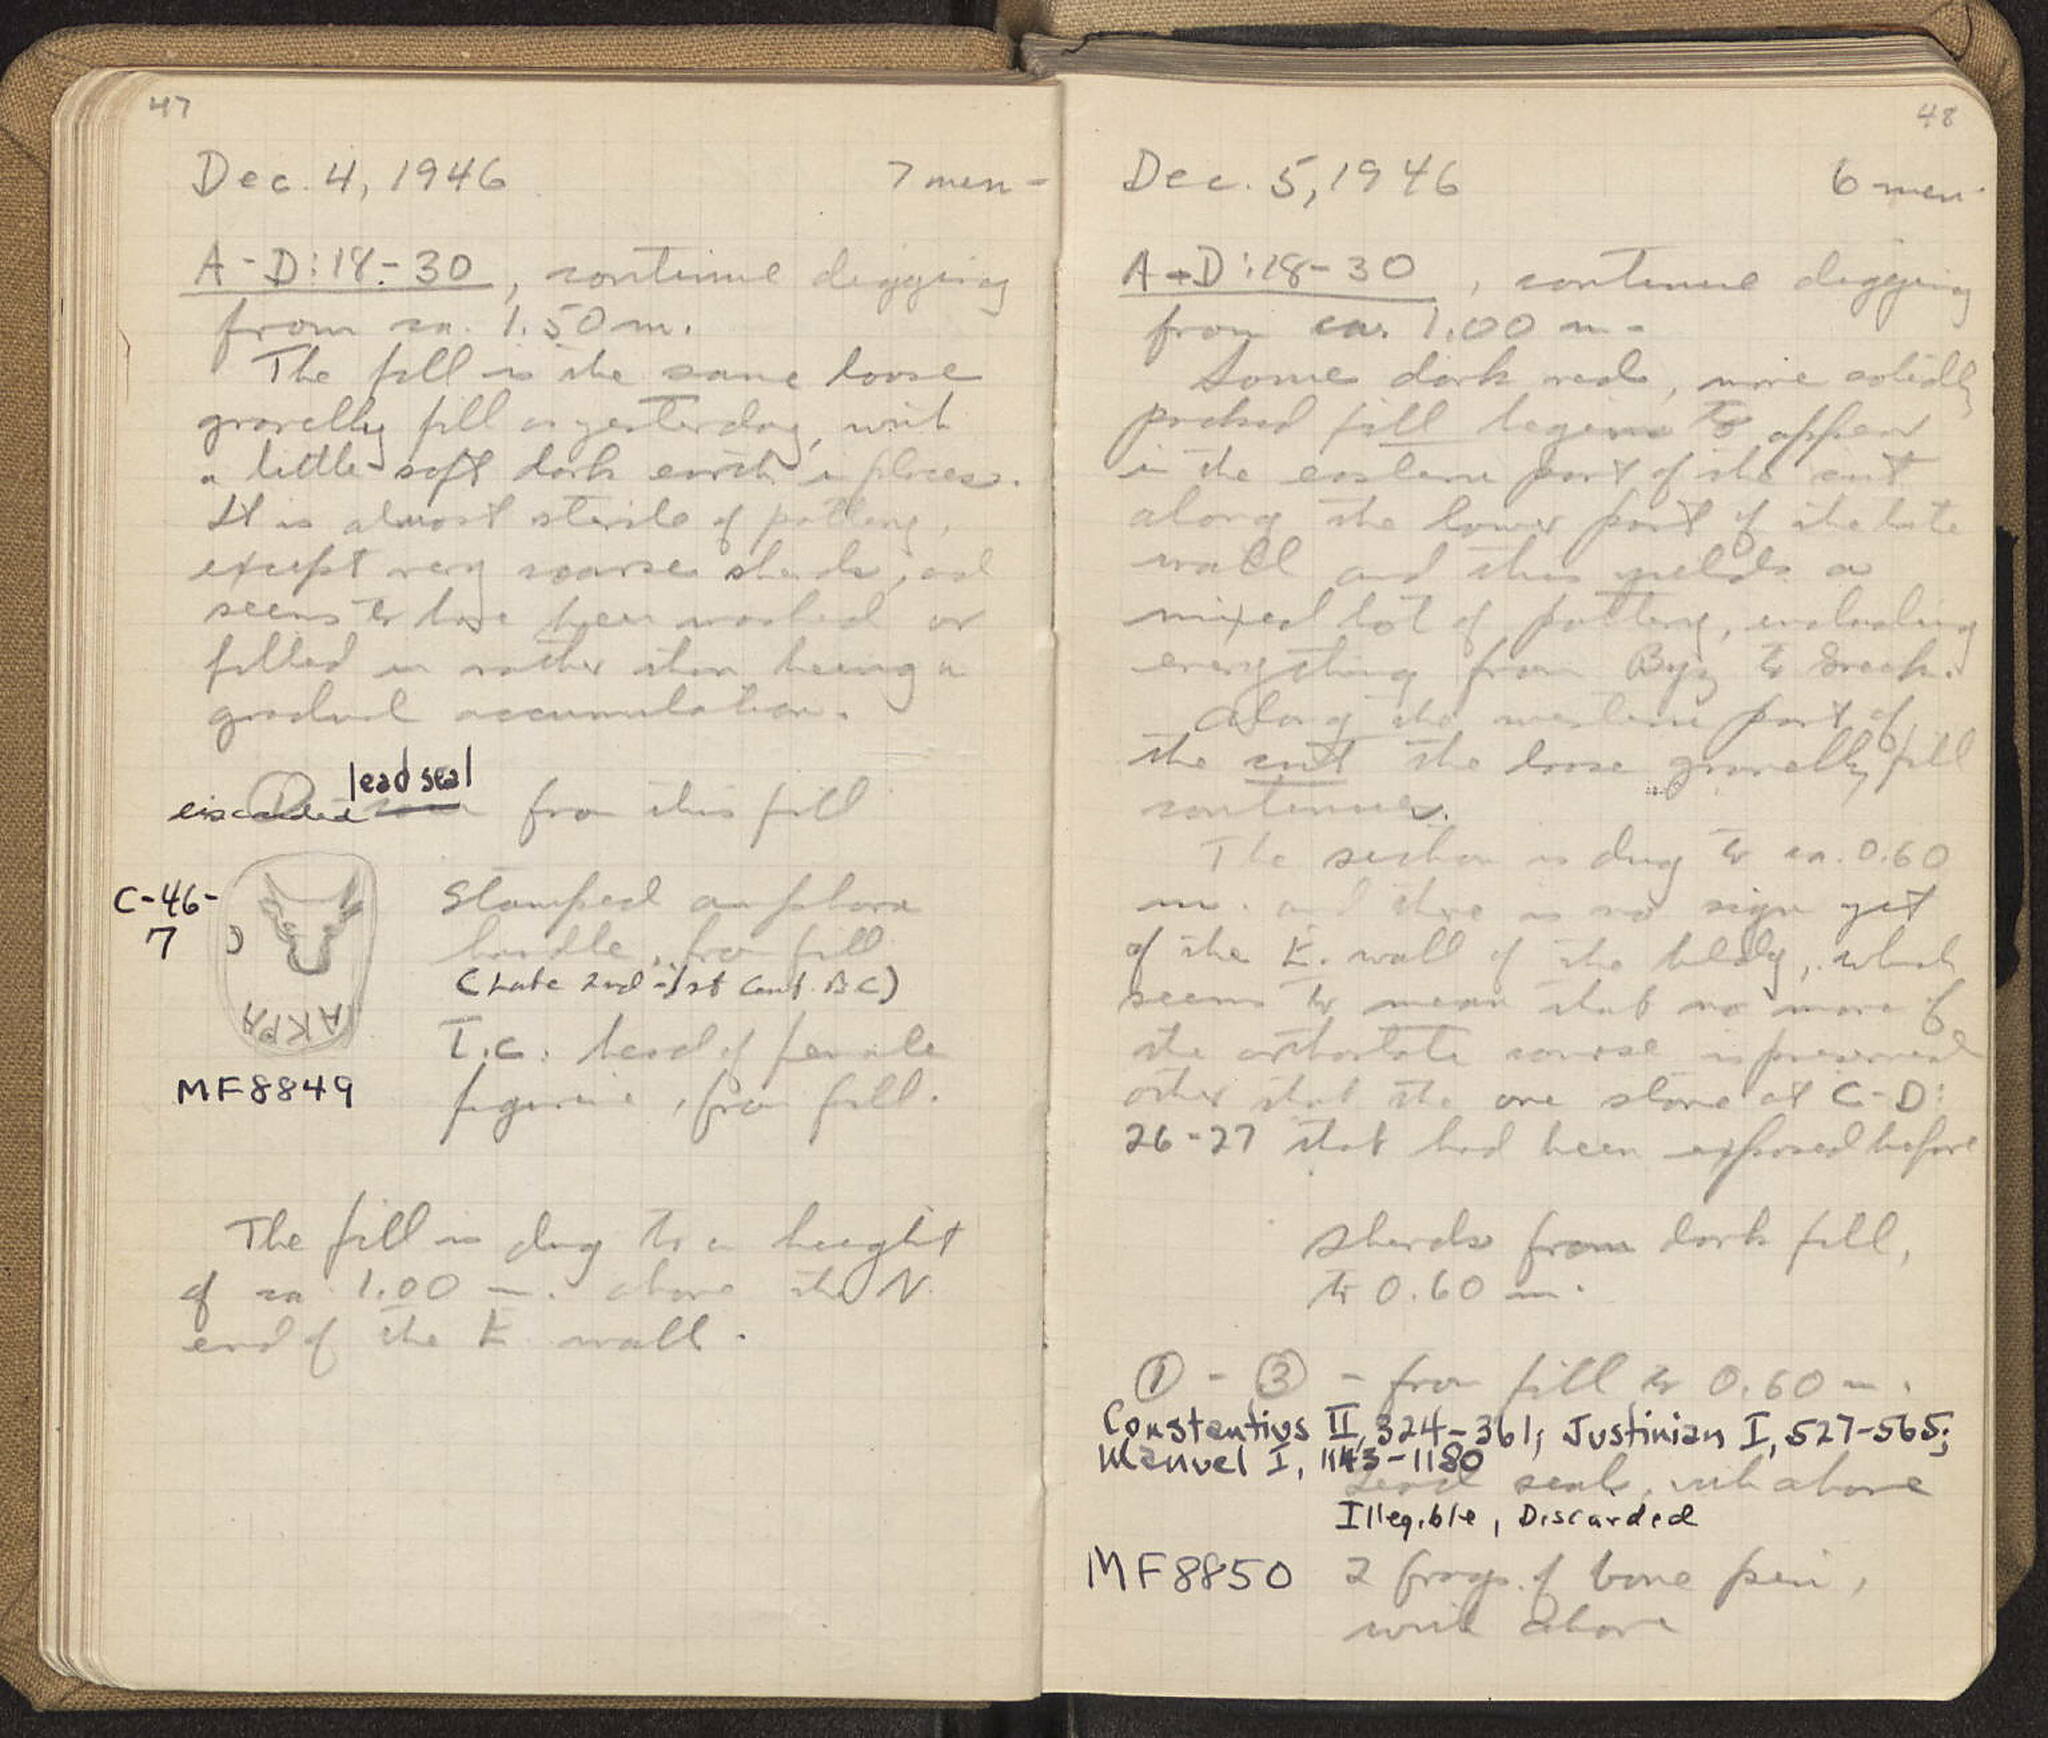 47
Dec. 4, 1946 7 men -
A-D:18-30, continue digging
from ca. 1.50 m.
The fill is the same loose
gravelly fill as yesterday, with
a little soft dark earth in places.
It is almost sterile of pottery,
except very coarse sherds, and
seems to have been washed or
filled in rather than being a
gradual accumulation.
lead seal
discarded ① from this fill
C-46-
7
Stamped amphora
handle, from fill
(Late 2nd - 1st Cent. BC)
ΑΚΡΑ
T.c. head of female
MF8849
figurine, from fill.
The fill is dug to a height
of ca 1.00 m. above the N.
end of the E wall.
48
Dec. 5, 1946 6 men.
A-D:18-30, continue digging
from ca. 1.00 m -
Some dark red, more solidly
packed fill begins to appear
in the eastern part of the cut
along the lower part of the late
wall and this yields a
mixed lot of pottery, including
everything from Byz to Greek.
Along the western part of
the cut the loose gravelly fill
continues.
The section is dug to ca. 0.60
m. and there is no sign yet
of the E. wall of the bldg, which
seems to mean that no more of
the orthostate course is preserved
other that the one stone at C-D:
26-27 that had been exposed before
Sherds from dark fill,
to 0.60 m.
① - ③ - from fill to 0.60 m.
Constantius II, 324-361; Justinian I, 527-565;
Manuel I, 1143-1180
Lead seal, with above
Illegible, Discarded
MF8850 2 frags. of bone pin,
with above